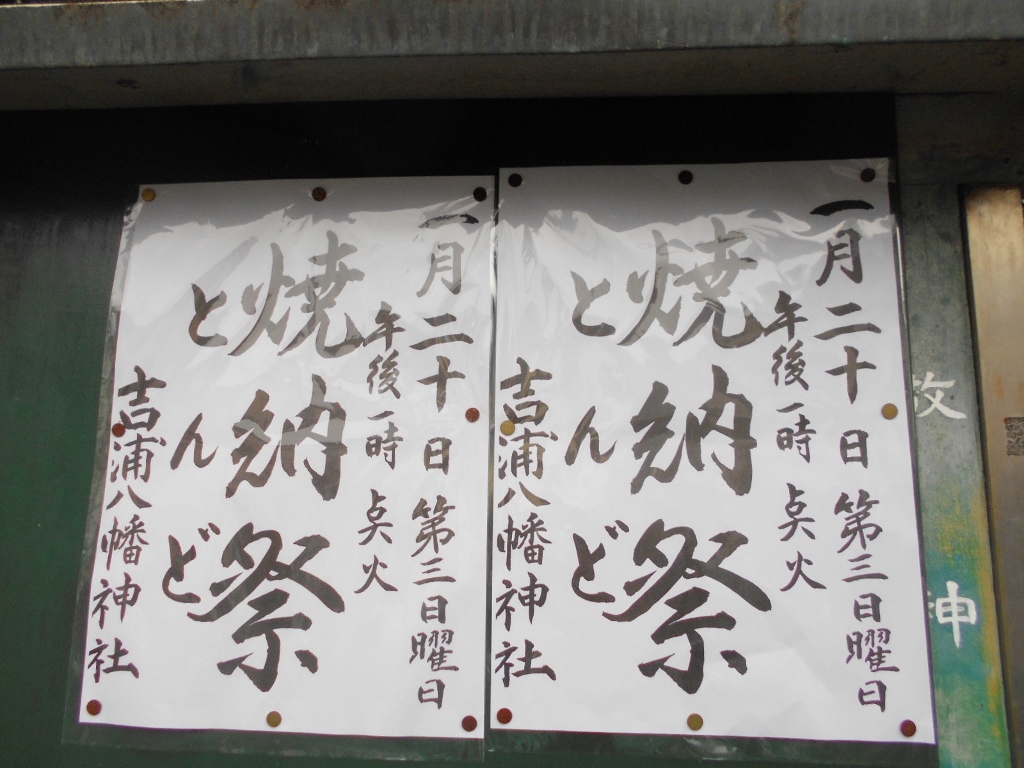 一月二十日 第三日曜日
午後一時 点火
焼納祭
とんど
吉浦八幡神社
一月二十日 第三日曜日
午後一時 点火
焼納祭
とんど
吉浦八幡神社
神